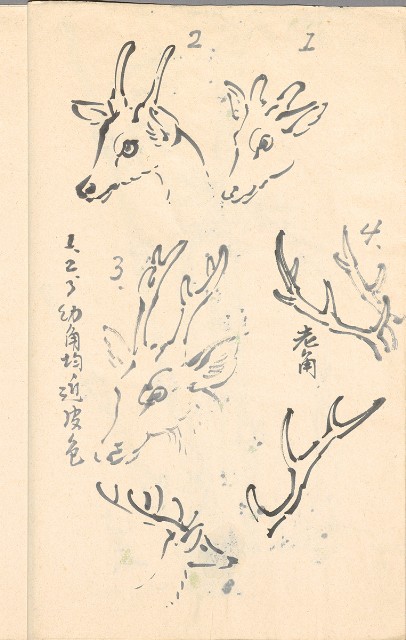 2. 1.
3. 4.
1.2.3 幼角均近皮色
老角